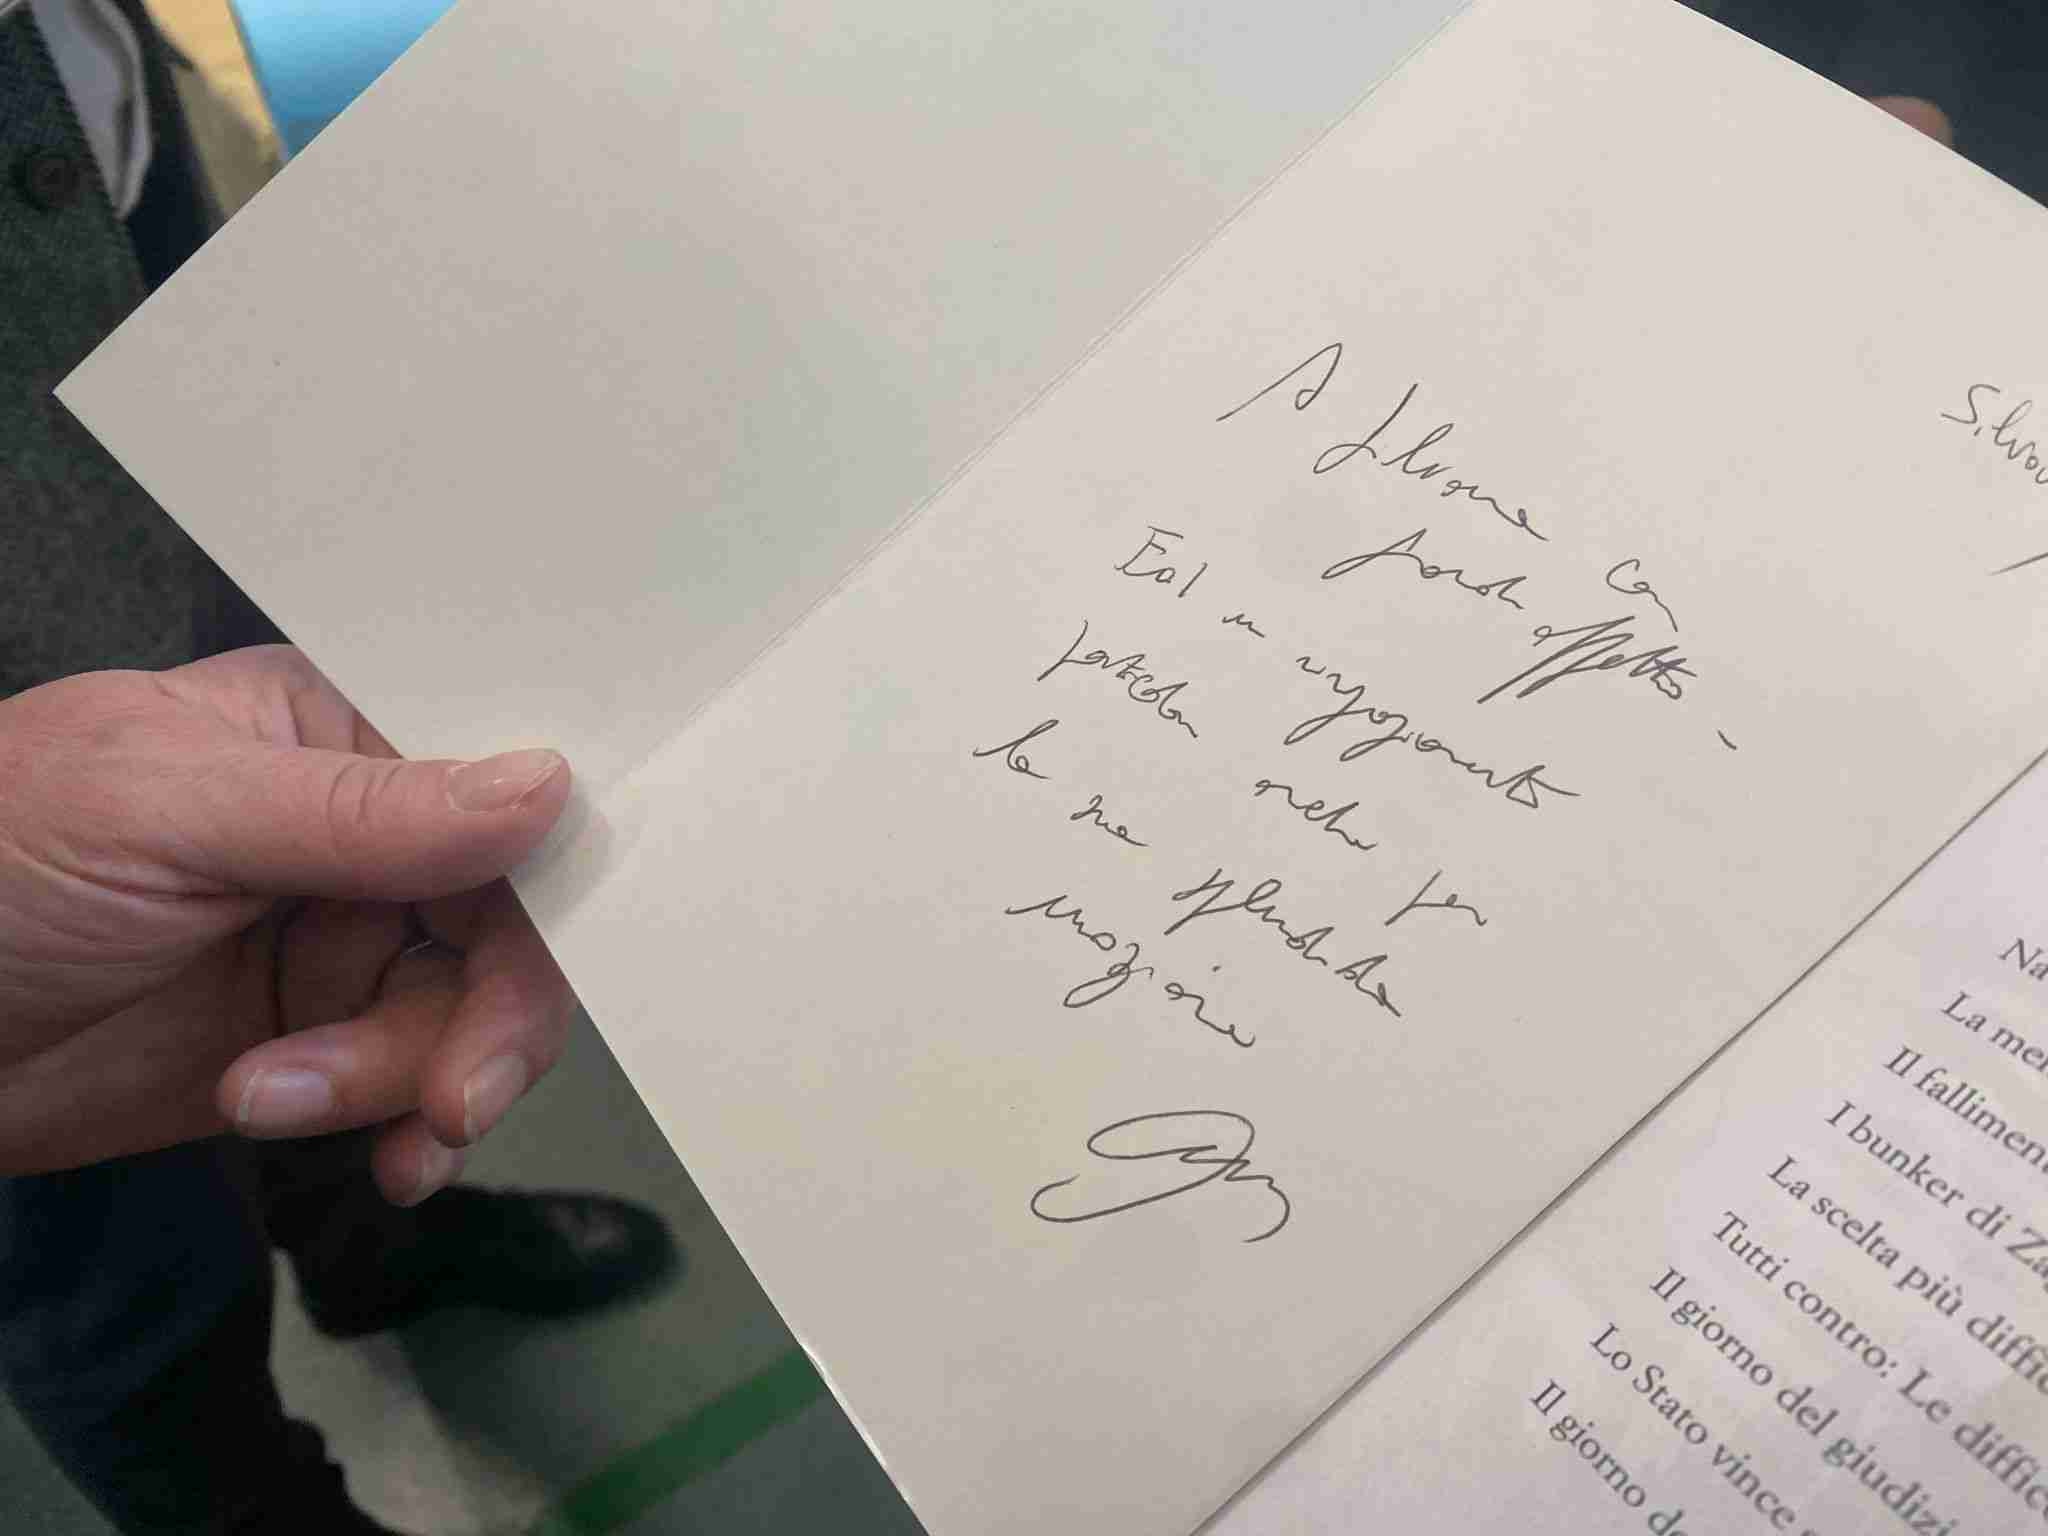 A Silvana con
grande affetto -
Ed un ringraziamento
particolare anche per
la sua splendida
mozione
Silvan
Na
La me
Il fallimen
I bunker di Za
La scelta più diffic
Tutti contro: Le diffic
Il giorno del giudizi
Lo Stato vince
Il giorno de